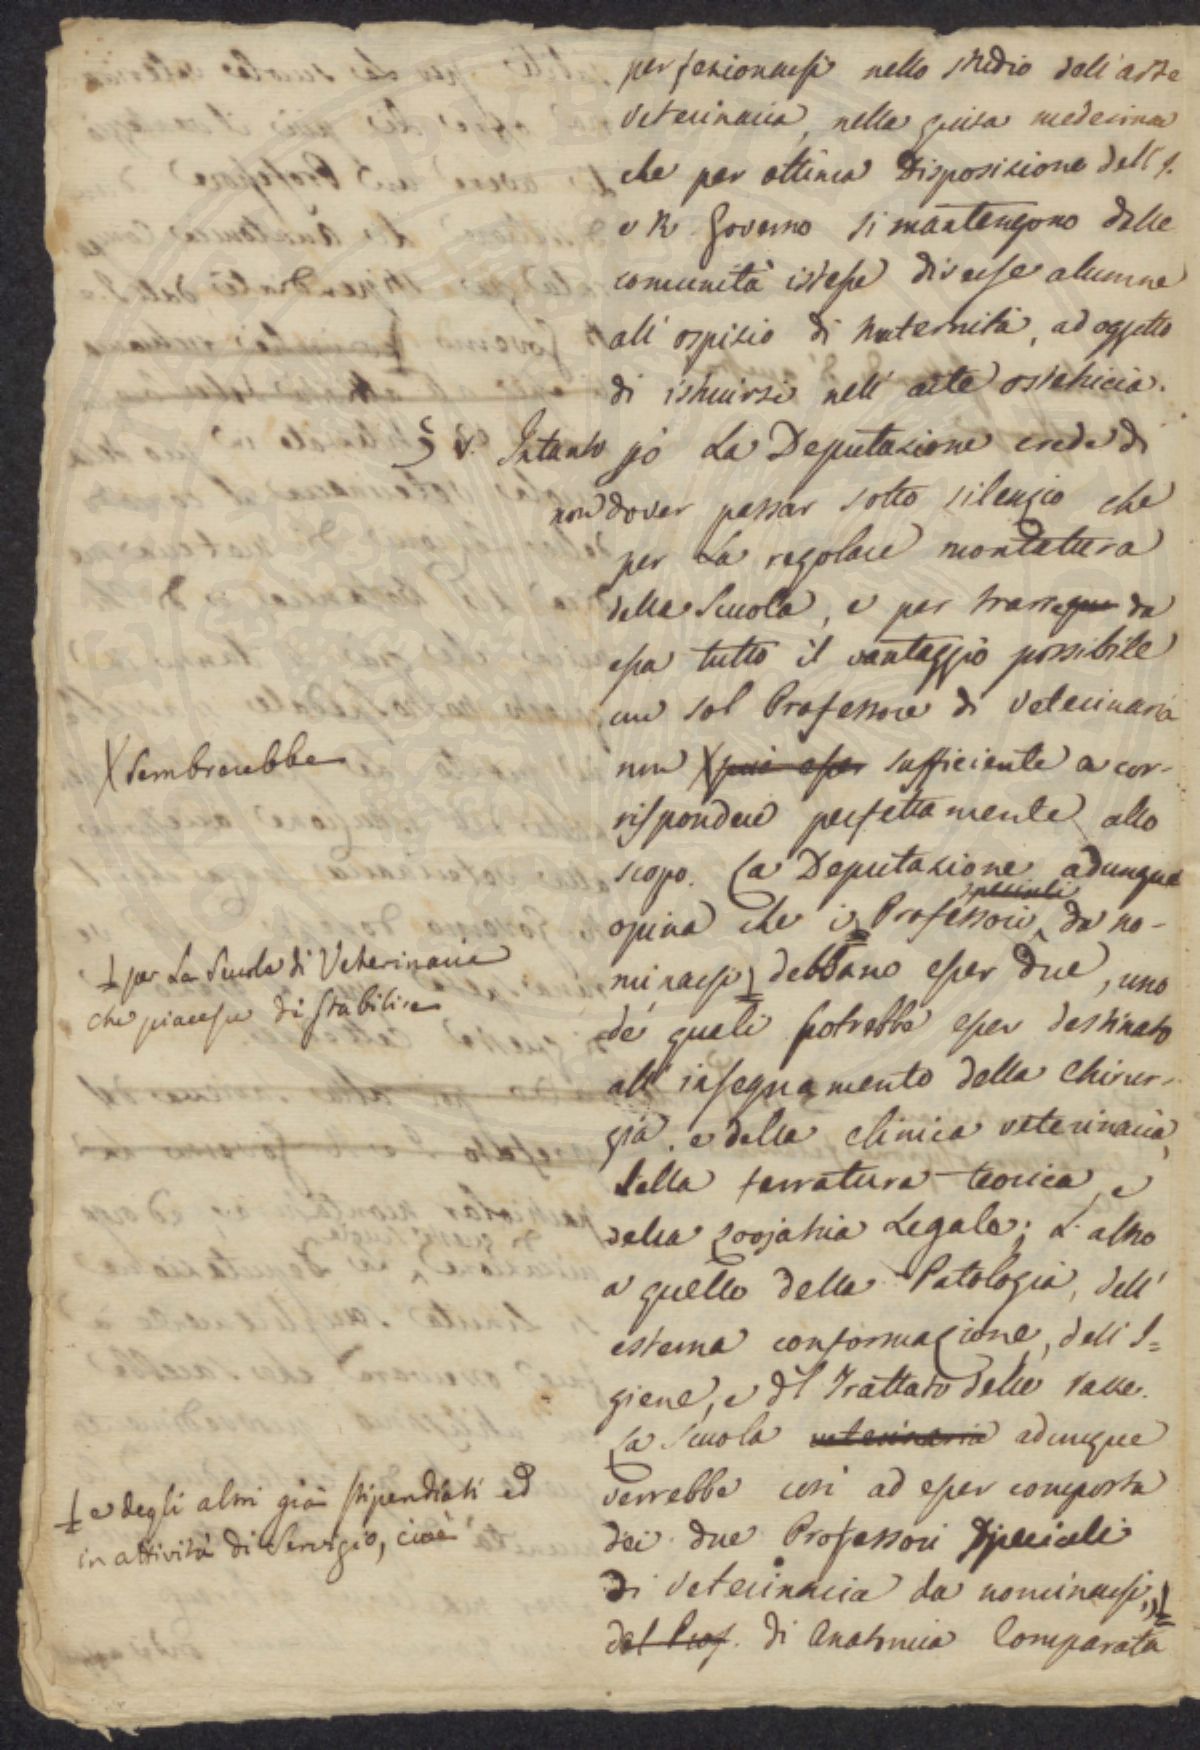 perfezionarsi nello studio dell'arte
veterinaria, nella guisa medesima
che per ottima Disposizione dell'I.
e R. Governo si mantengono dalle
comunità istesse diverse alunne
all'ospizio di Maternità, ad oggetto
di istruirsi nell'arte ostetricia.
§ V. Intanto però La Deputazione crede di
non dover passar sotto silenzio che
per La regolare montatura
della Scuola, e per trarre da
essa tutto il vantaggio possibile
un sol Professore di Veterinaria
non X può esser sufficiente a cor-
X Sembrerebbe
rispondere perfettamente allo
scopo. La Deputazione adunque
speciali
opina che i Professori da no-
minarsi debbano esser due, uno
per La Scuola di Veterinaria
che piacesse di stabilire
de' quali potrebbe esser destinato
all'insegnamento della Chirur-
gia, e della clinica veterinaria,
della ferratura teorica, e
della Zoojatria Legale; L'altro
a quello della Patologia, dell'
esterna conformazione, dell'I=
giene, e del Trattato delle razze.
La Scuola veterinaria adunque
verrebbe così ad esser composta
dei due Professori Speciali
di Veterinaria da nominarsi,
e degli altri già stipendiati ed
in attività di Servigio, cioè
del Prof. di Anatomia Comparata